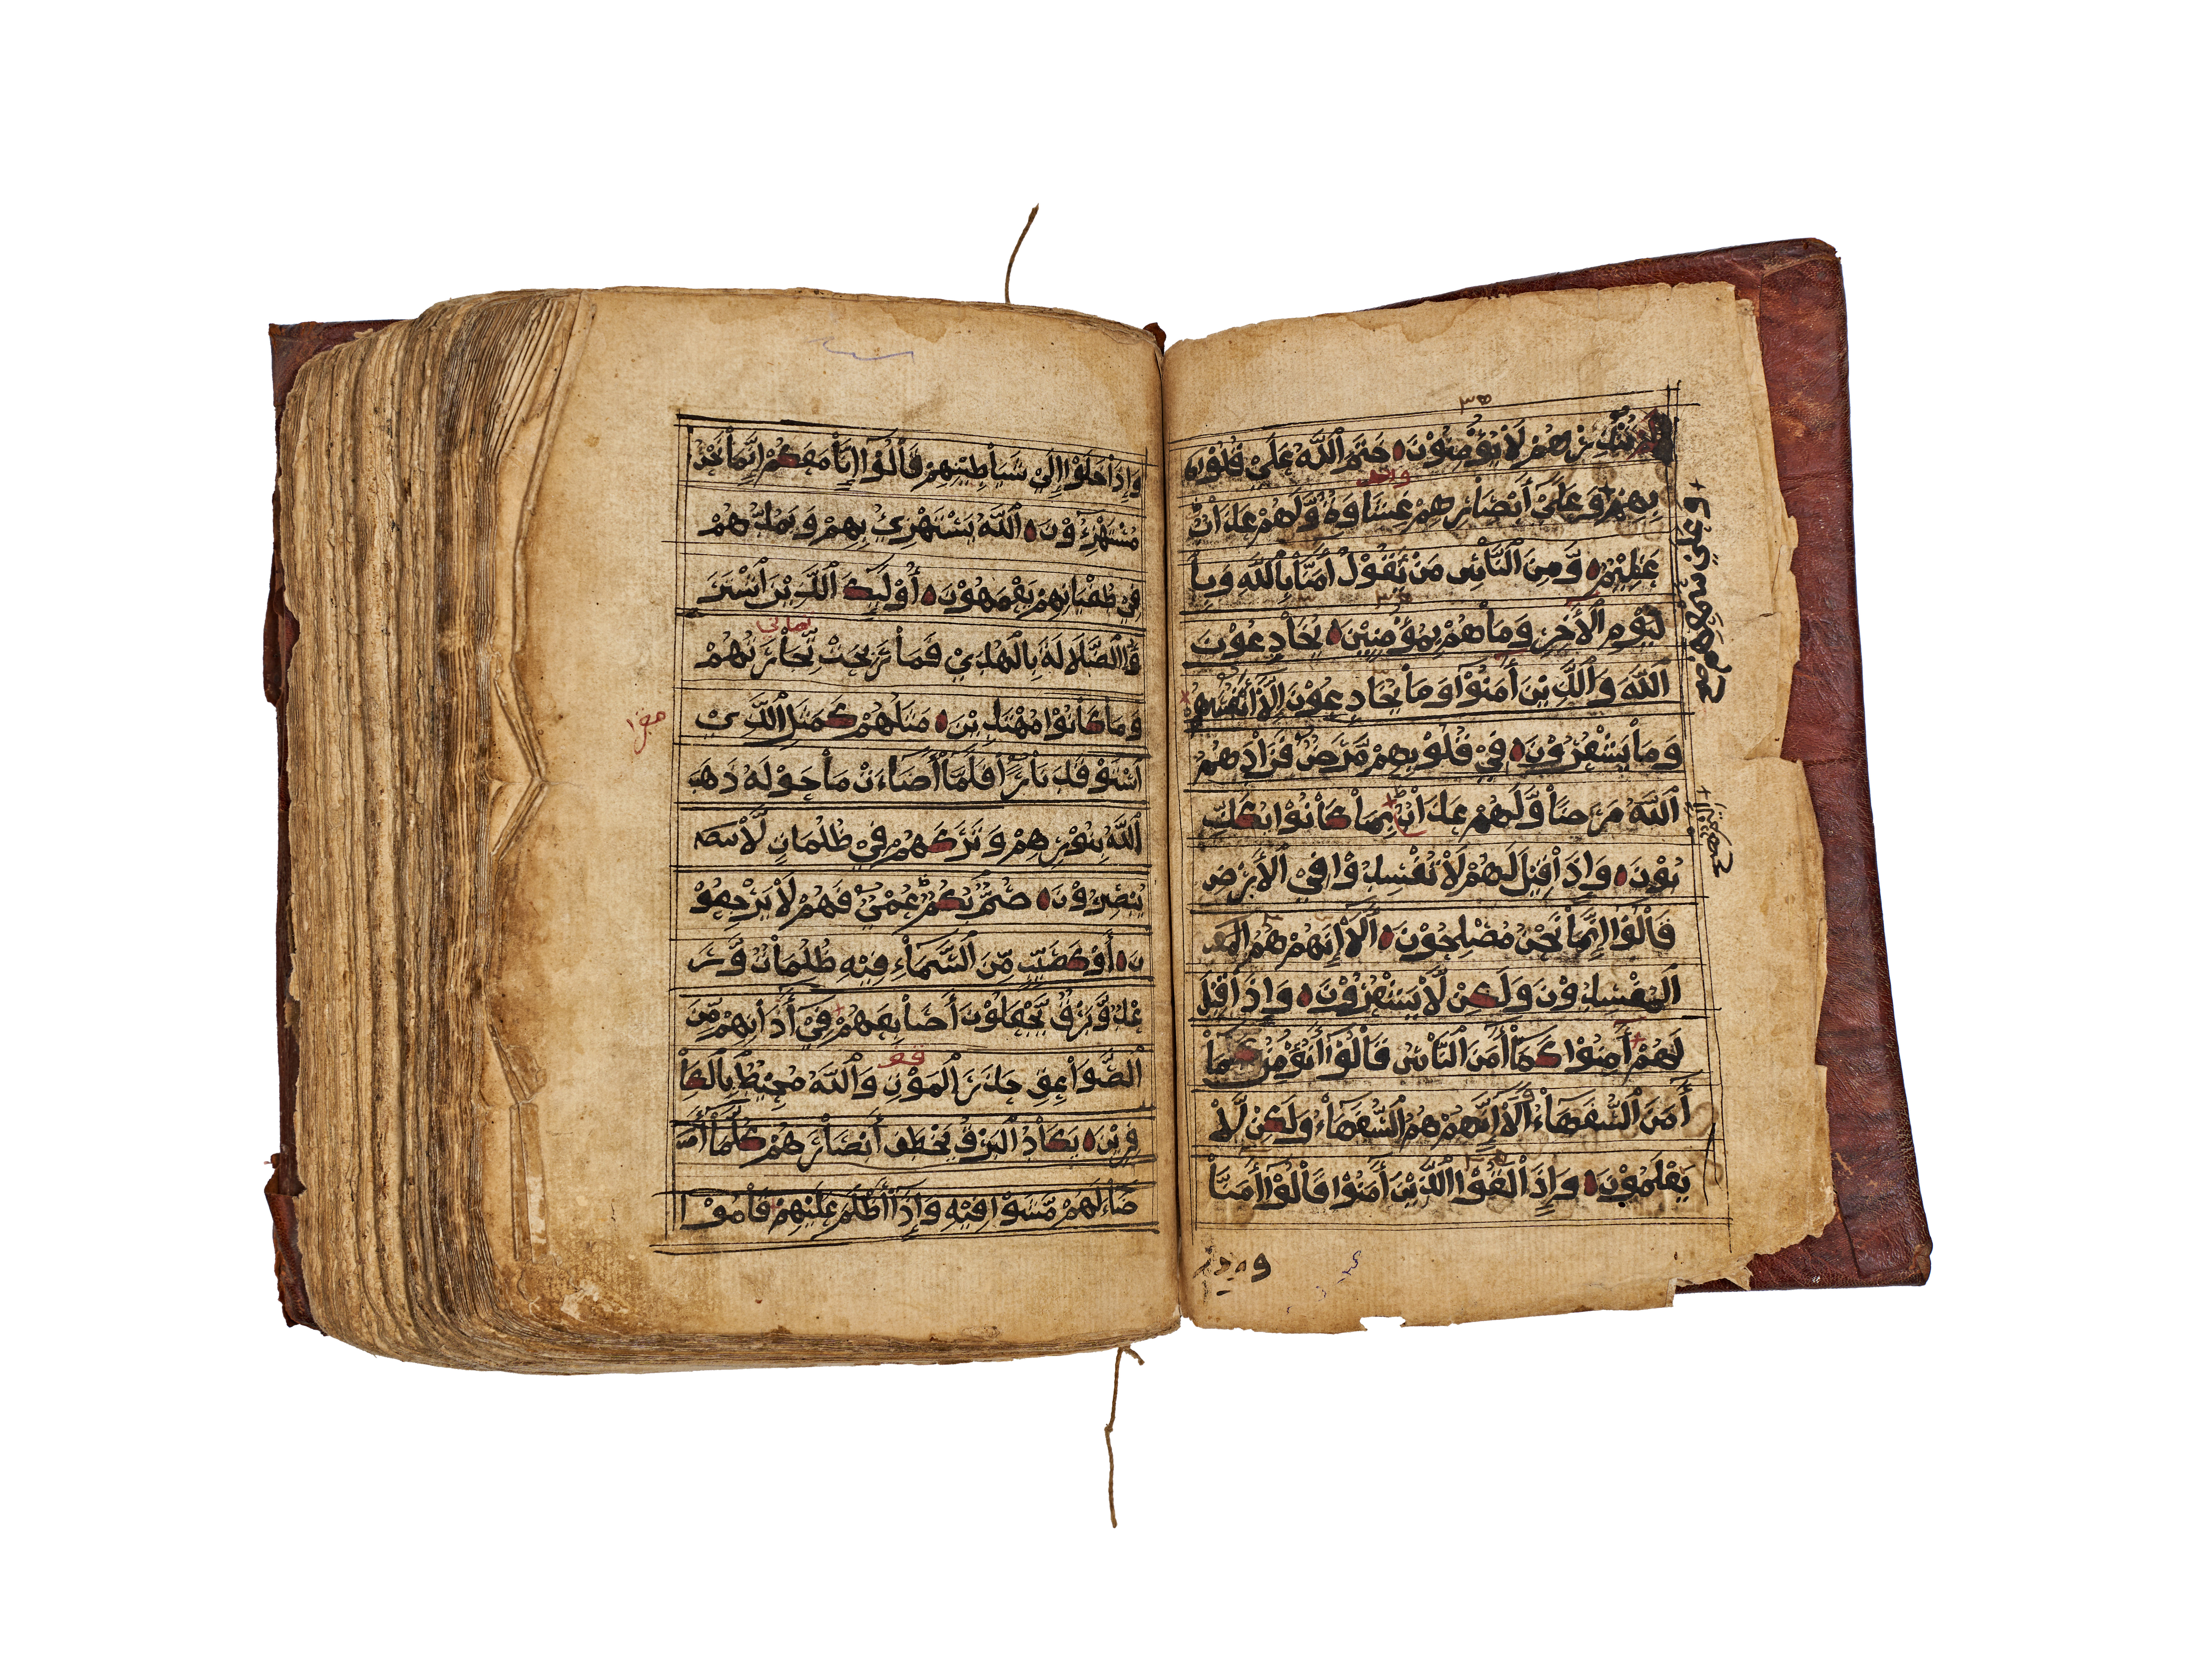 تُنْذِرْهُمْ لَاْ يُؤْمِنُوْنَ ه خَتَمَ اَللَّهُ عَلَىْ قُلُوْبِهِ
بِهِمْ وَعَلَىْ أَبْصَاْرِهِمْ غِشَاوَةٌ وَّلَهُمْ عَذَابٌ
عَظِيْمٌ ه وَّمِنَ اَلنَّاْسِ مَنْ يَّقُوْلُ أَمَنَّاْ بِاْللَّهِ وَبِاْ
لْيَوْمِ اْلأَخِرِ وَمَاْهُمْ بِمُؤْمِنِيْنَ ه يُخَاْدِعُوْنَ
اَللَّهَ وَاَلَّذِيْنَ أَمَنُوْا وَمَاْ يُخَاْدِعُوْنَ إِلَّاْ أَنْفُسَهُمْ
وَمَاْ يَشْعُرُوْنَ ه فِيْ قُلُوْبِهِمْ مَّرَضٌ فَزَاْدَهُمُ
اَللَّهُ مَرَضًاْ وَّلَهُمْ عَذَابٌ بِمَاْ كَاْنُوْا يُكَذِّ
بُوْنَ ه وَإِذَاْ قِيْلَ لَهُمْ لَاْ تُفْسِدُوْا فِيْ اْلأَرْضِ
قَاْلُوْا إِنَّمَاْ نَحْنُ مُصْلِحُوْنَ ه أَلَاْ إِنَّهُمْ هُمُ المف
اَلْمُفْسِدُوْنَ وَلَكِنْ لَّاْ يَشْعُرُوْنَ ه وَإِذَاْ قِيْلَ
لَهُمْ أَمِنُوْا كَمَاْ أَمَنَ اَلنَّاْسُ قَاْلُوْا أَنُؤْمِنُ كَمَاْ
أَمَنَ اَلسُّفَهَاْءُ أَلَاْ إِنَّهُمْ هُمُ اَلسُّفَهَاْءُ وَلَكِنْ لَّاْ
يَعْلَمُوْنَ ه وَإِذَاْ لَقُوْا اَلَّذِيْنَ أَمَنُوْا قَاْلُوْا أَمَنَّاْ
وعلى سمعهم صح
وَإِذَاْ خَلَوْا إِلَىْ شَيَاْطِيْنِهِمْ قَاْلُوْا إِنَّاْ مَعَكُمْ إِنَّمَاْ نَحْنُ
مُسْتَهْزِءُوْنَ ه اَللَّهُ يَسْتَهْزِئُ بِهِمْ وَيَمُدُّهُمْ
فِيْ طُغْيَانِهِمْ يَعْمَهُوْنَ ه أُوْلَئِكَ اَلَّذِيْنَ اَشْتَرَ
وُاْ اَلضَّلَالَةَ بِاْلْهُدَىْ فَمَاْ رَبِحَتْ تِّجَاْرَتُهُمْ
وَمَا كَانُوْا مُهْتَدِيْنَ ه مَثَلُهُمْ كَمَثَلِ اَلَّذِيْ
اسْتَوْقَدَ نَاْرًاْ فَلَمَّاْ أَضَاْءَتْ مَاْ حَوْلَهُ ذَهَبَ
اَللَّهُ بِنُوْرِهِمْ وَتَرَكَهُمْ فِيْ ظُلُمَاتٍ لَّاْ يبص
يُبْصِرُوْنَ ه صُمٌّ بُكْمٌ عُمْيٌ فَهُمْ لَاْ يَرْجِعُوْ
نَ ه أَوْ كَصَيِّبٍ مِّنَ اَلسَّمَاْءِ فِيْهِ ظُلُمَاتٌ وَّرَ
عْدٌ وَّبَرْقٌ يَّجْعَلُوْنَ أَصَاْبِعَهُمْ فِيْ أَذَاْنِهِمْ مِّنَ
اَلصَّوَاْعِقِ حَذَرَ اَلْمَوْتِ وَاَللَّهُ مُحِيْطٌ بِاْلْكَاْ
فِرِيْنَ ه يَكَاْدُ اَلْبَرْقُ يَخْطَفُ أَبْصَاْرَهُمْ كُلَّمَاْ أَضَ
ضَاْءَ لَهُمْ مَّشَوْا فِيْهِ وَإِذَاْ أَظْلَمَ عَلَيْهِمْ قَاْمُوْا